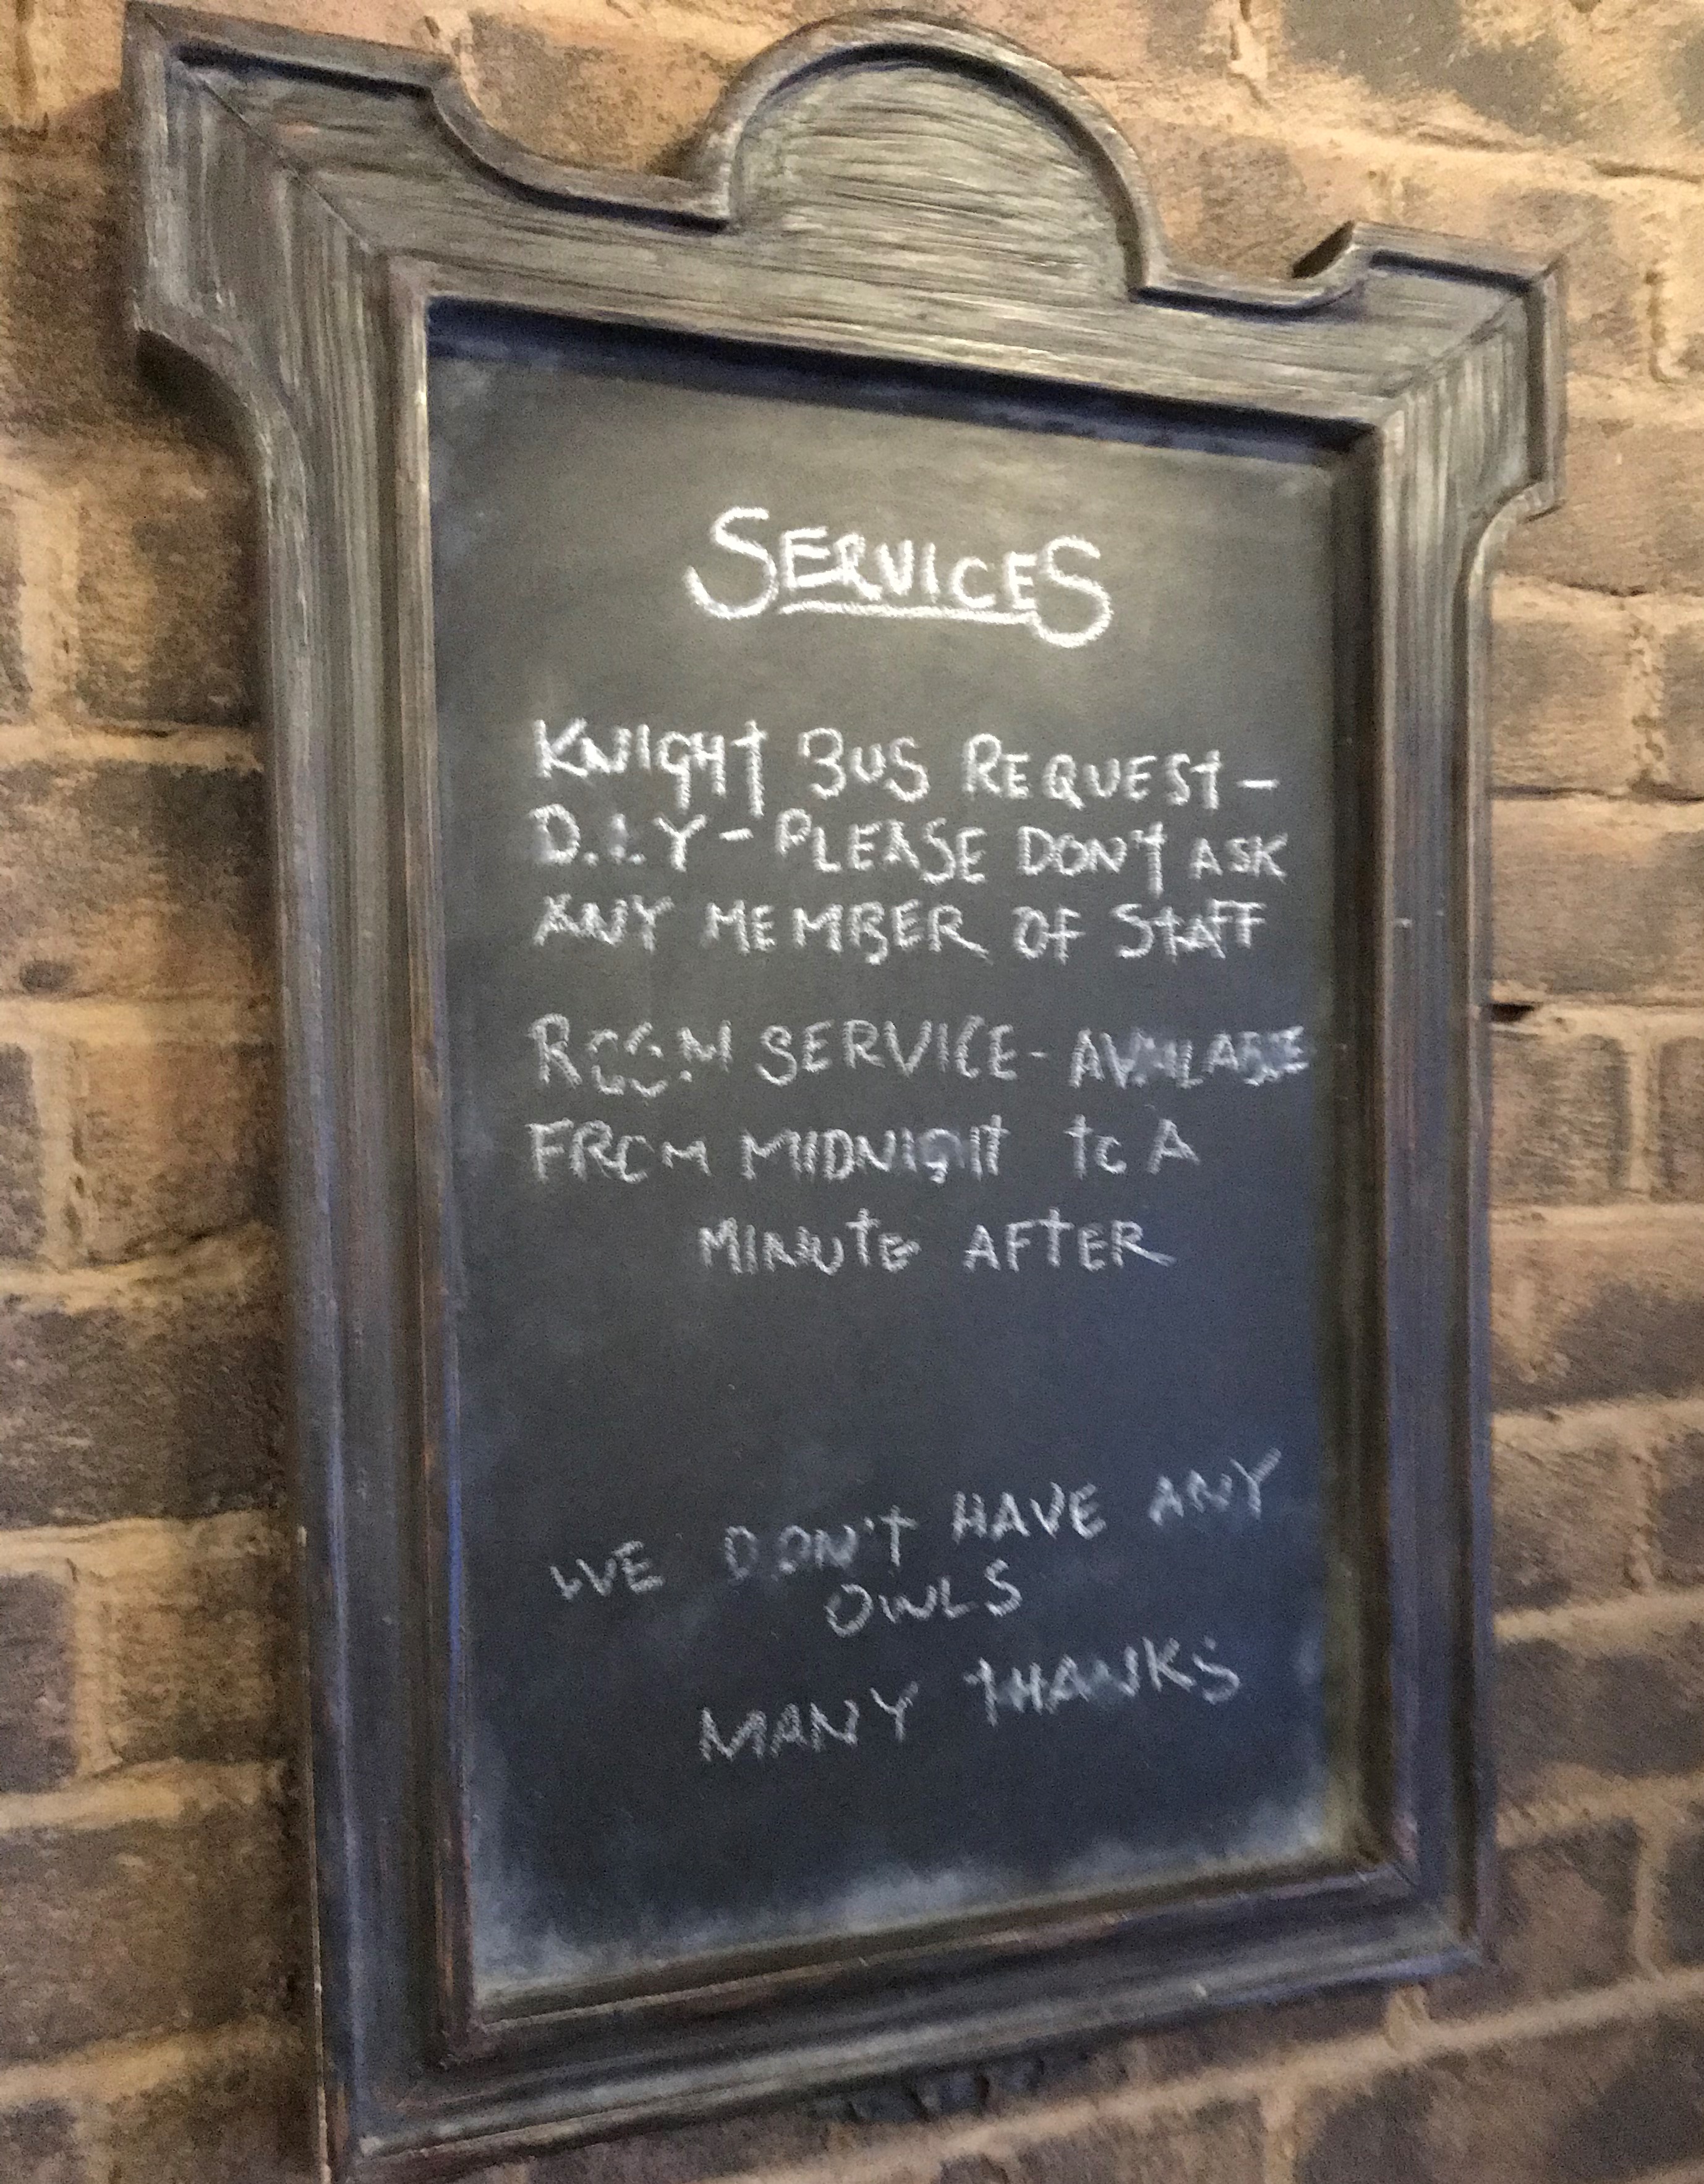 SERVICES
KNIGHT BUS REQUEST -
D.I.Y - PLEASE DON'T ASK
ANY MEMBER OF STAFF
ROOM SERVICE - AVAILABLE
FROM MIDNIGHT to A
MINUtE AFtER
WE DON'T HAVE ANY
OWLS
MANY tHANKS